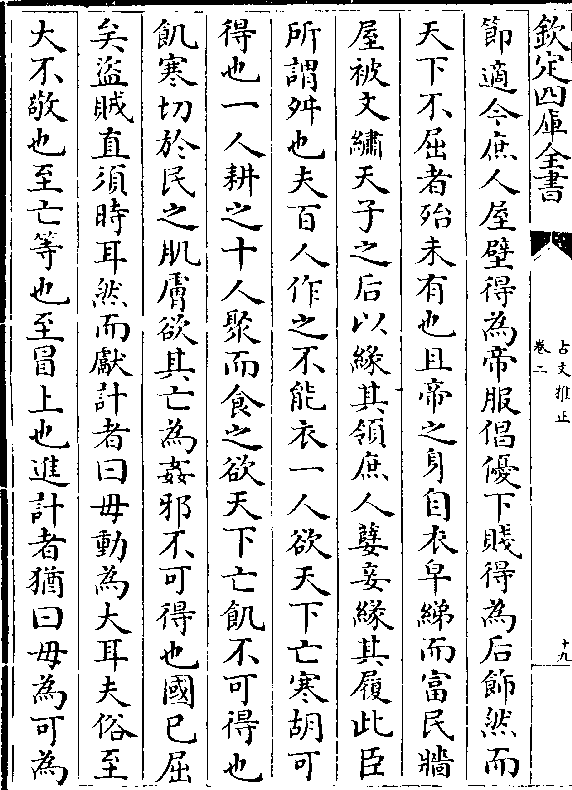 欽定四庫全書
古文雅正
卷二
十九
節適今庶人屋壁得為帝服倡優下賤得為后飾然而
天下不屈者殆未有也且帝之身自衣皁綈而富民牆
屋被文繡天子之后以緣其領庶人嬖妾緣其履此臣
所謂舛也夫百人作之不能衣一人欲天下亡寒胡可
得也一人耕之十人聚而食之欲天下亡飢不可得也
飢寒切於民之肌膚欲其亡為姦邪不可得也國已屈
矣盜賊直須時耳然而獻計者曰毋動為大耳夫俗至
大不敬也至亡等也至冒上也進計者猶曰毋為可為